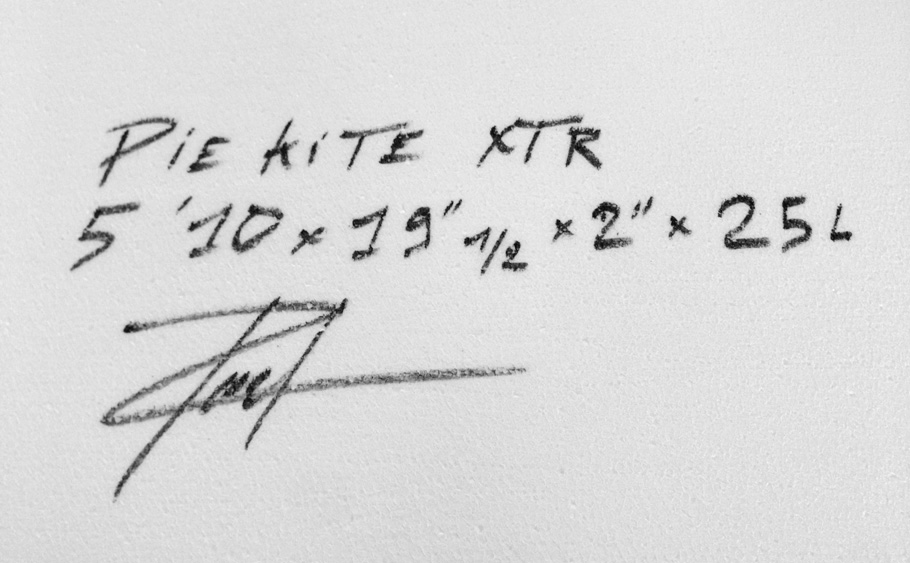 PiE KiTE XTR
5'10 x 19" 1/2 x 2" x 25L